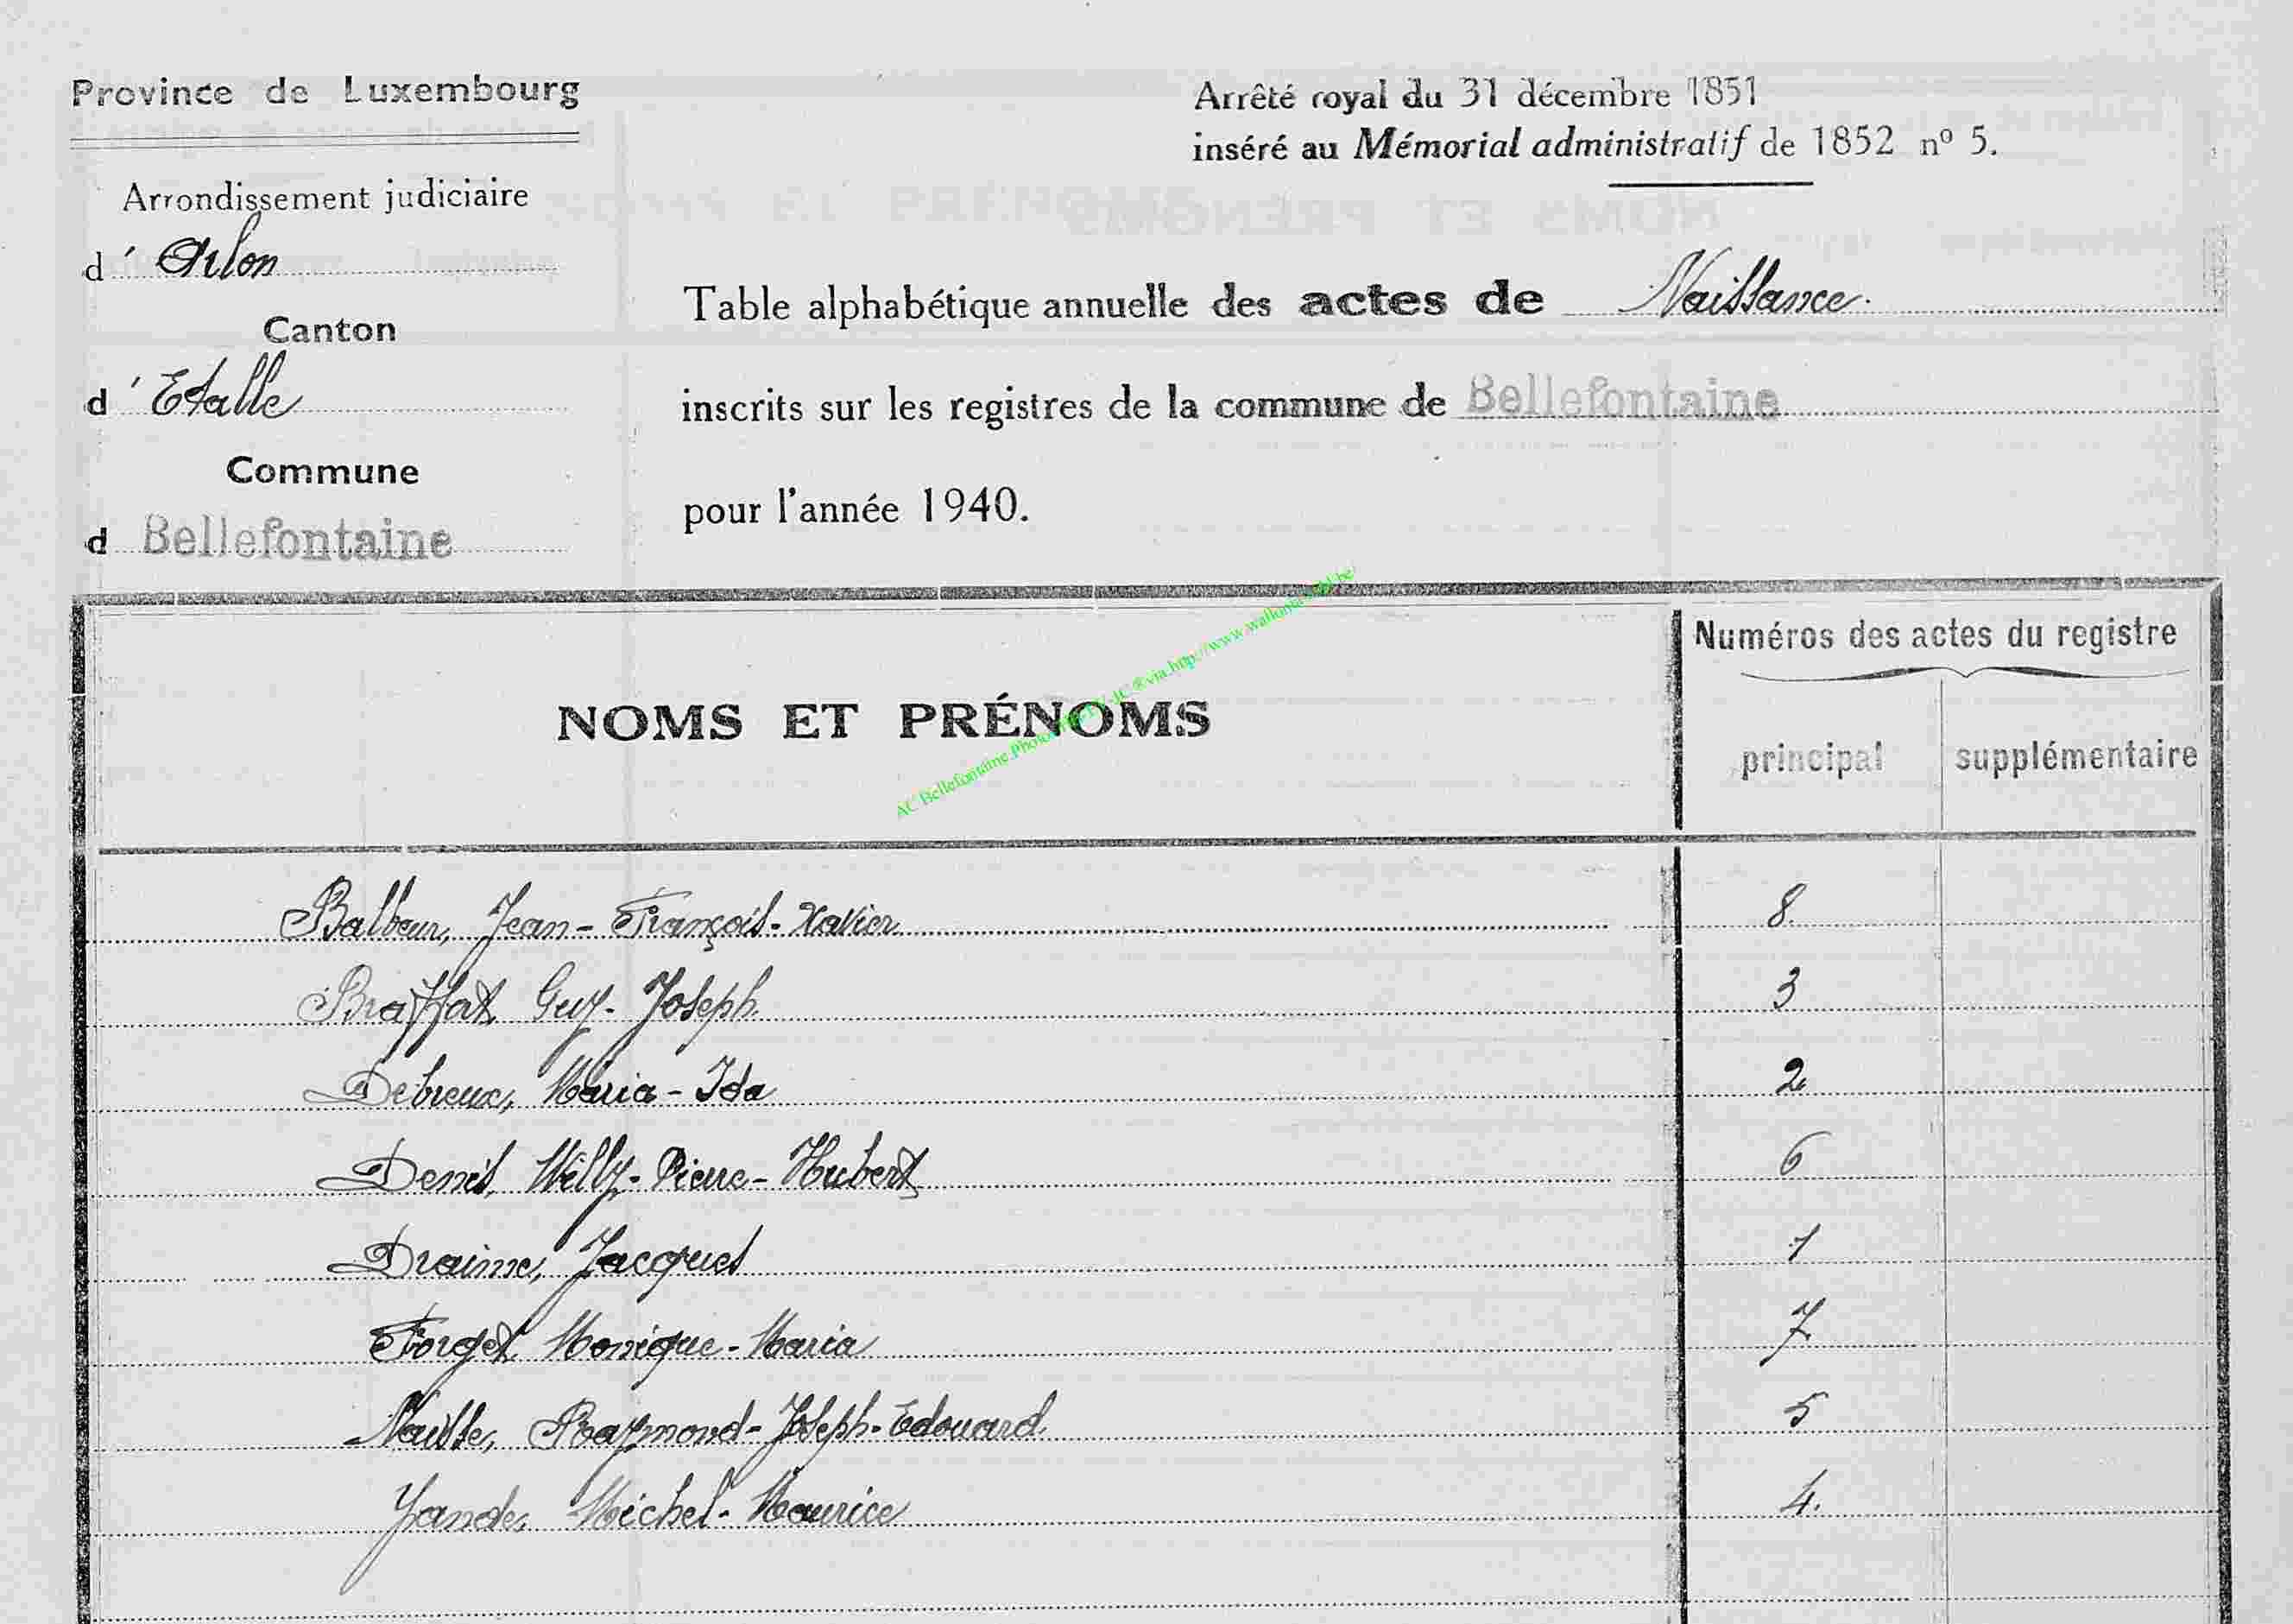 Province de Luxembourg
Arrêté royal du 31 décembre 1851
inséré au Mémorial administratif de 1852 nº 5.
Arrondissement judiciaire
d' Arlon
Canton
d' Etalle
Commune
d Bellefontaine
Table alphabétique annuelle des actes de Naissance.
inscrits sur les registres de la commune de Bellefontaine
pour l'année 1940.
NOMS ET PRÉNOMS
Numéros des actes du registre
principal
supplémentaire
AC Bellefontaine
Balbeur, Jean-François-Xavier 8
Braffat, Guy-Joseph 3
Debreux, Maria-Ida 2
Denis, Willy-Pierre-Hubert 6
Draime, Jacques 1
Forget, Monique-Maria 7
Raymond-Joseph-Edouard. 5
Yande, Michel-Maurice 4.